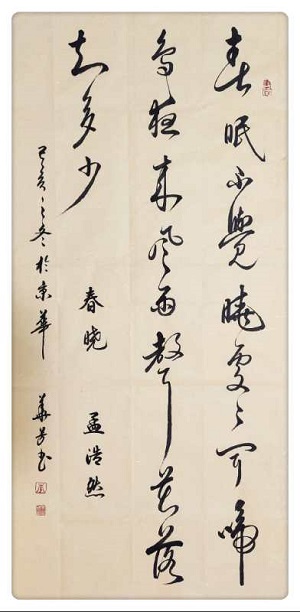 春眠不覺曉處々闻啼
鸟夜来风雨聲花落
知多少
春晓 孟浩然
己亥之冬於京華 華芳书